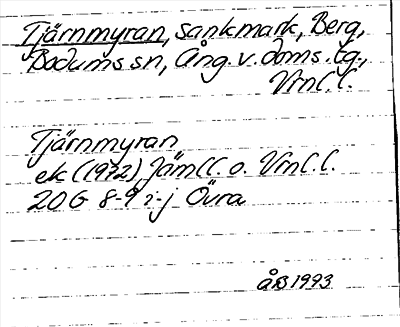 Tjärnmyran, sankmark, Berg,
Bodums sn, Ång. v. doms. tg.,
Vrnl. l.
Tjärnmyran
ek (1972) Jämtl. o. Vrnl. l.
20 G 8-9 i-j Övra
ås 1993